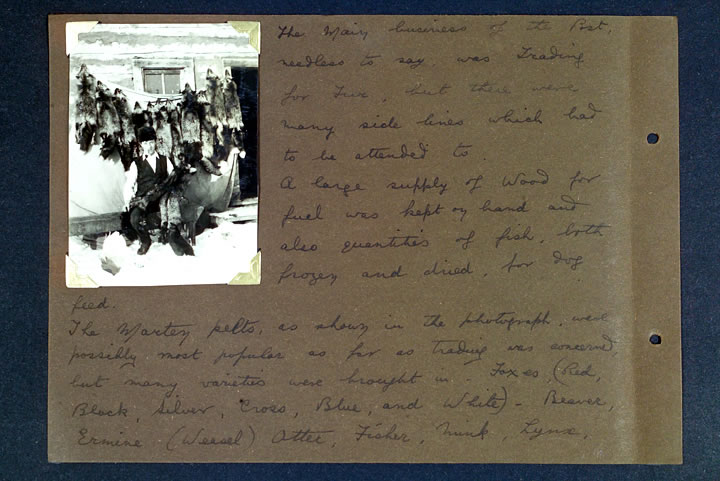 The Main business of the Post,
needless to say, was Trading
for Fur, but there were
many side lines which had
to be attended to.
A large supply of Wood for
fuel was kept on hand and
also quantities of fish, both
frozen and dried, for dog
feed.
The Marten pelts, as shown in the photograph, were
possibly most popular as far as trading was concerned
but many varieties were brought in. Foxes (Red,
Black, Silver, Cross, Blue, and White) - Beaver,
Ermine (Weasel) Otter, Fisher, Mink, Lynx,